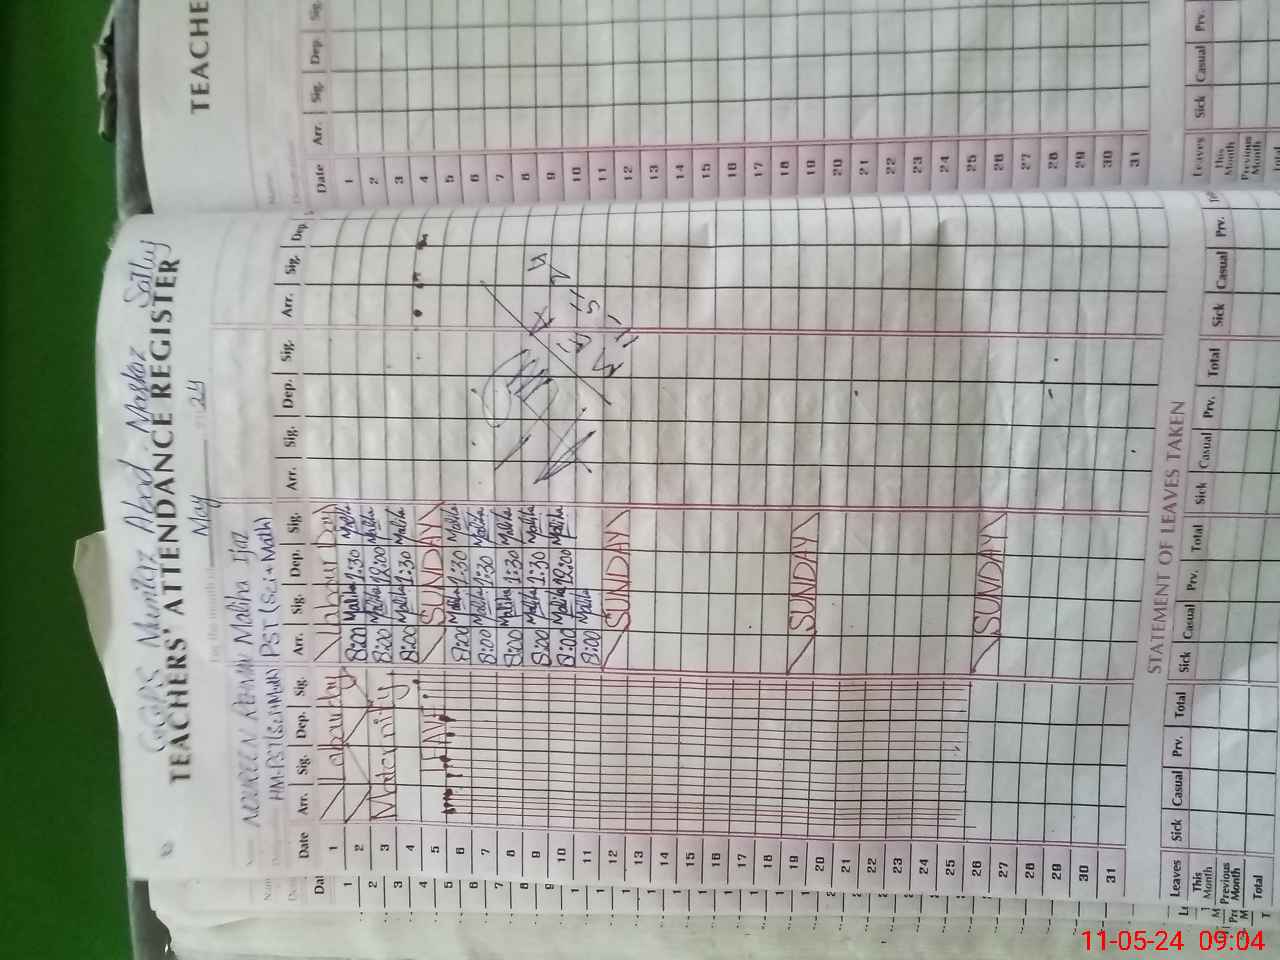 GGPS Mumtaz Abad
TEACHERS' ATTENDANCE REGISTER
For the month of May 24
Maliha Ijaz
HM-PST(Sci+Math) PST (Sci+Math)
Date Arr. Sig. Dep. Sig. Arr. Sig. Dep. Sig. Arr. Sig. Dep. Sig. Arr. Sig. Dep.
1 Labour Day Labour Day
2 8:00 Maliha 1:30 Maliha
3 Maternity 8:00 Maliha 12:00 Maliha
4 8:00 Maliha 1:30 Maliha
5 LEAVE SUNDAY
6 8:00 Maliha 1:30 Maliha
7 8:00 Maliha 1:30 Maliha
8 8:00 Maliha 1:30 Maliha
9 8:00 Maliha 1:30 Maliha
10 8:00 Maliha 12:00 Maliha
11 8:00 Maliha
12 SUNDAY
13
14
15
16
17
18
19 SUNDAY
20
21
22
23
24
25
26 SUNDAY
27
28
29
30
31
STATEMENT OF LEAVES TAKEN
Leaves Sick Casual Prv. Total Sick Casual Prv. Total Sick Casual Prv. Total Sick Casual Prv.
This Month
Previous Month
Total
TEACHE
Date Arr. Sig. Dep. Sig.
1
2
3
4
5
6
7
8
9
10
11
12
13
14
15
16
17
18
19
20
21
22
23
24
25
26
27
28
29
30
31
Leaves Sick Casual Prv.
This Month
Previous Month
Total
11-05-24 09:04